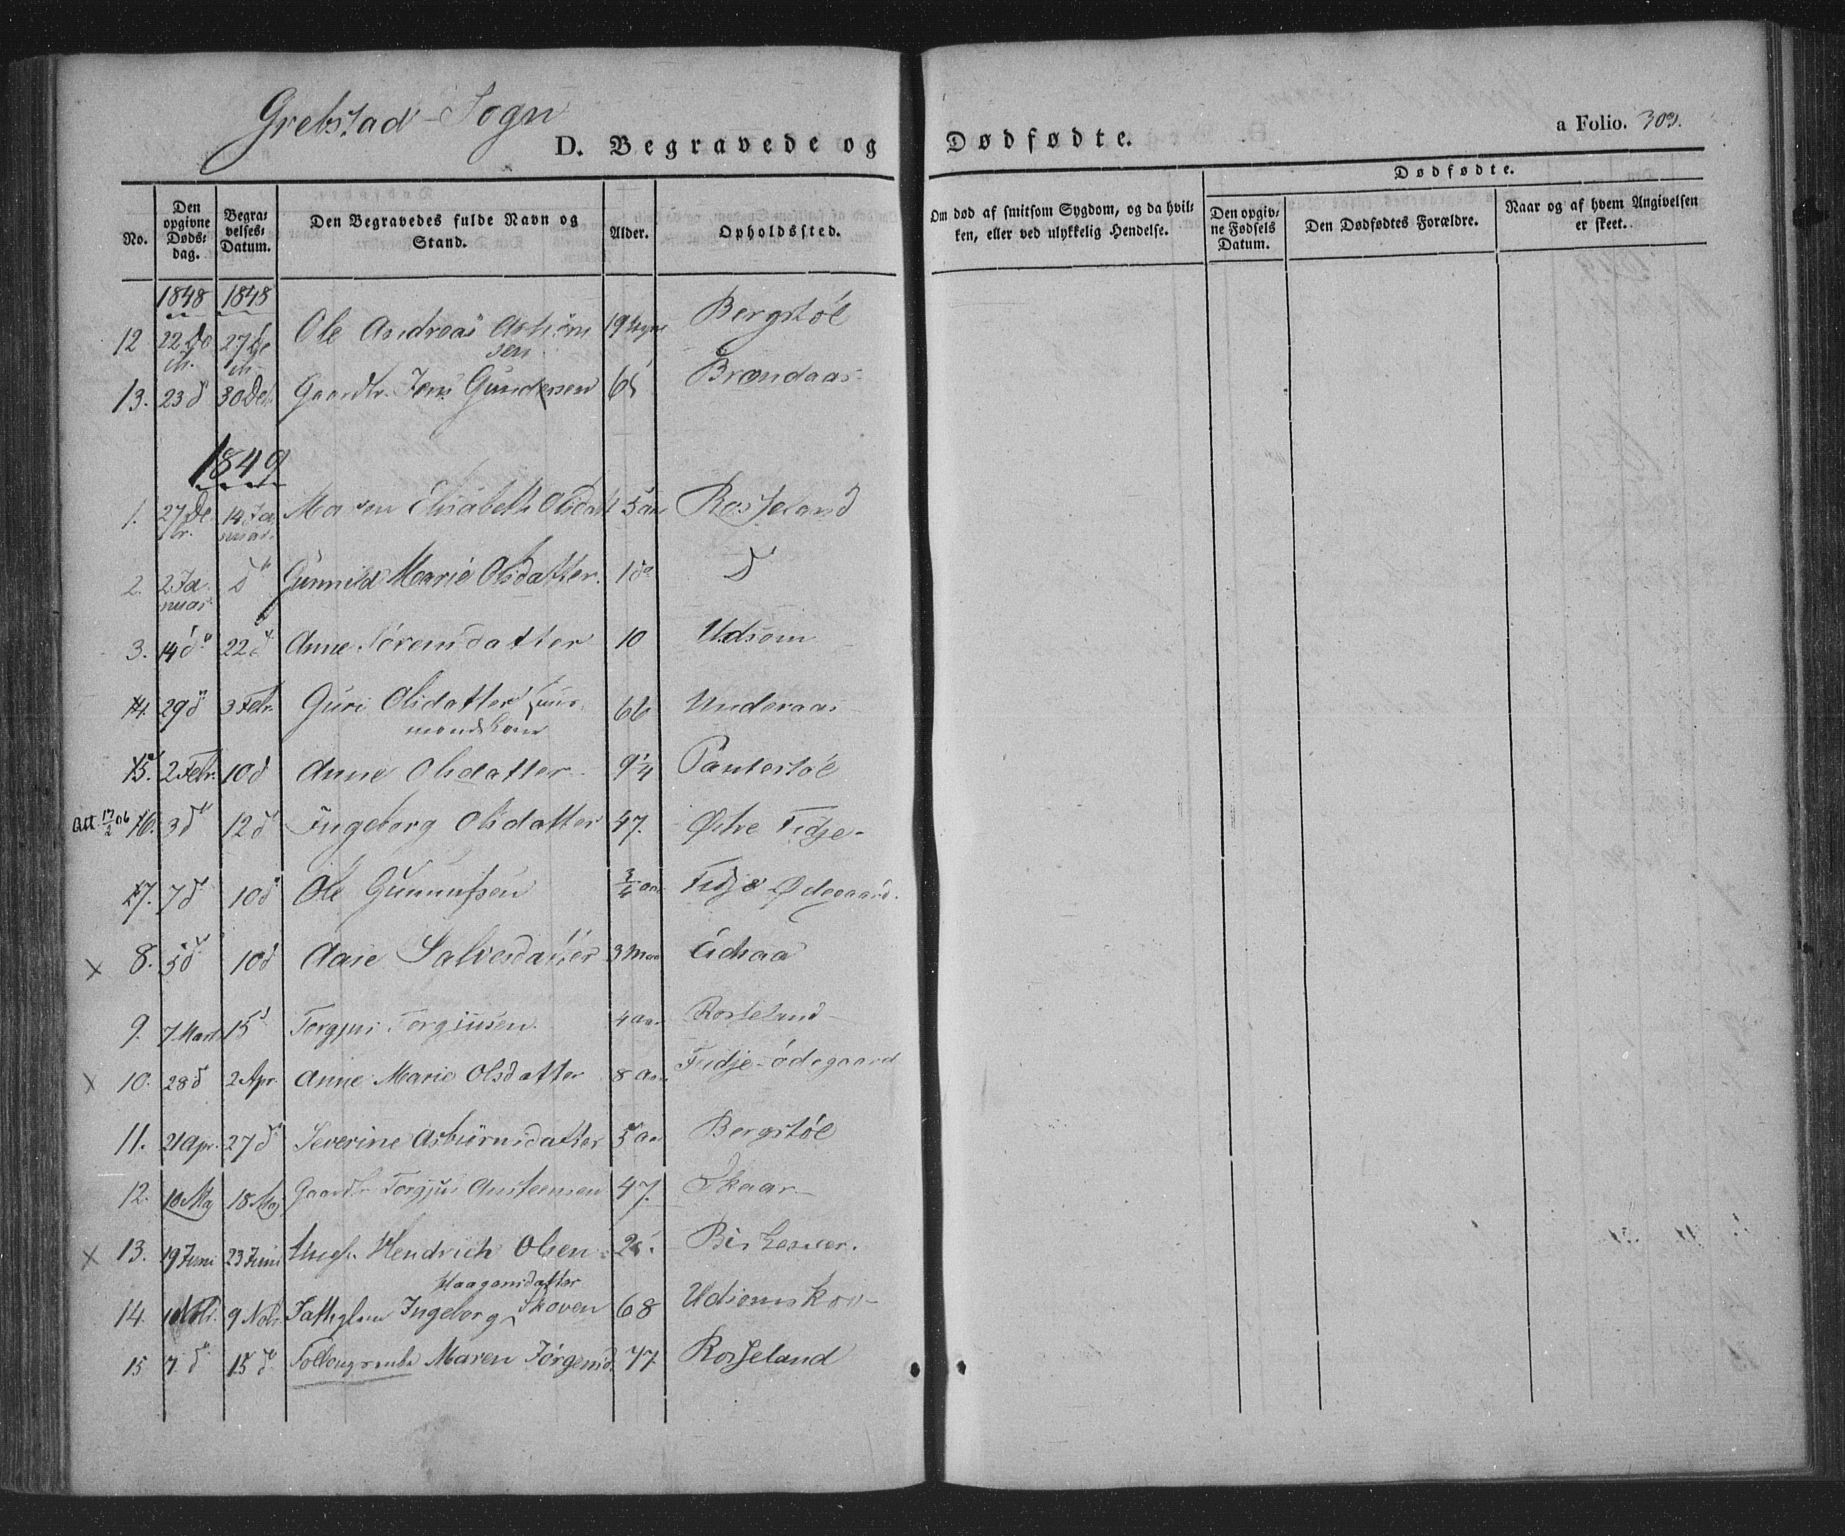 Grebstad Sogn
D. Begravede og Dødfødte.
a Folio. 303.
No.
Den opgivne Døds-dag.
Begra-velses-Datum.
Den Begravedes fulde Navn og Stand.
Alder.
Opholdssted.
Om død af smitsom Sygdom, og da hvil-ken, eller ved ulykkelig Hendelse.
Dødfødte.
Den opgiv-ne Fødsels Datum.
Den Dødfødtes Forældre.
Naar og af hvem Angivelsen er skeet.
1848 1848
12 22 27 Ole Andreas sen 19 Bergstøl
13. 23 d 30 Gaardbr. Jens Gundersen 65 Brændaas
1849
1. 27 De br. 14 Ja nuar. Maren Elisabeth Olsdatt 5 aar Rosseland
2. 2 Ja nuar d Gunnild Marie Olsdatter 1 d d
3. 14 d 22 d Anne Sørensdatter 10 Udsom
4. 29 d 3 Febr. Guri Olsdatter Huus mandskone 66 Underaas
5. 2 Febr. 10 d Anne Olsdatter 9 1/4 Pantestøl
Att 17/2 06 6. 3 d 12 d Ingeborg Olsdatter 47. Østre Fidje
7. 7 d 10 d Ole Gunnufsen 3/4 aar Fidje Ødegaard.
x 8. 5 d 10 d Aase Salvesdatter 3 Eidsaa
9. 7 Marts 15 d Torgjus Torgjusen 4 aar Rosseland
x 10. 28 d 2 Apr. Anne Marie Olsdatter 8 aar Fidje-ødegaard
11. 21 Apr. 27 d Severine Asbiørnsdatter 5 aar Bergstøl
12. 10 Maj 18 Maj Gaardbr Torgjus Austensen 47. Skaar
x 13. 19 Juni 23 Juni Ungk. Hendrich Olsen 25. Birkenær.
14. 9 Nobr. Ingeborg Haagensdatter Skoven 68 Udsomskov
15 7. d 15 d Maren Jørgensd. 77. Rosseland